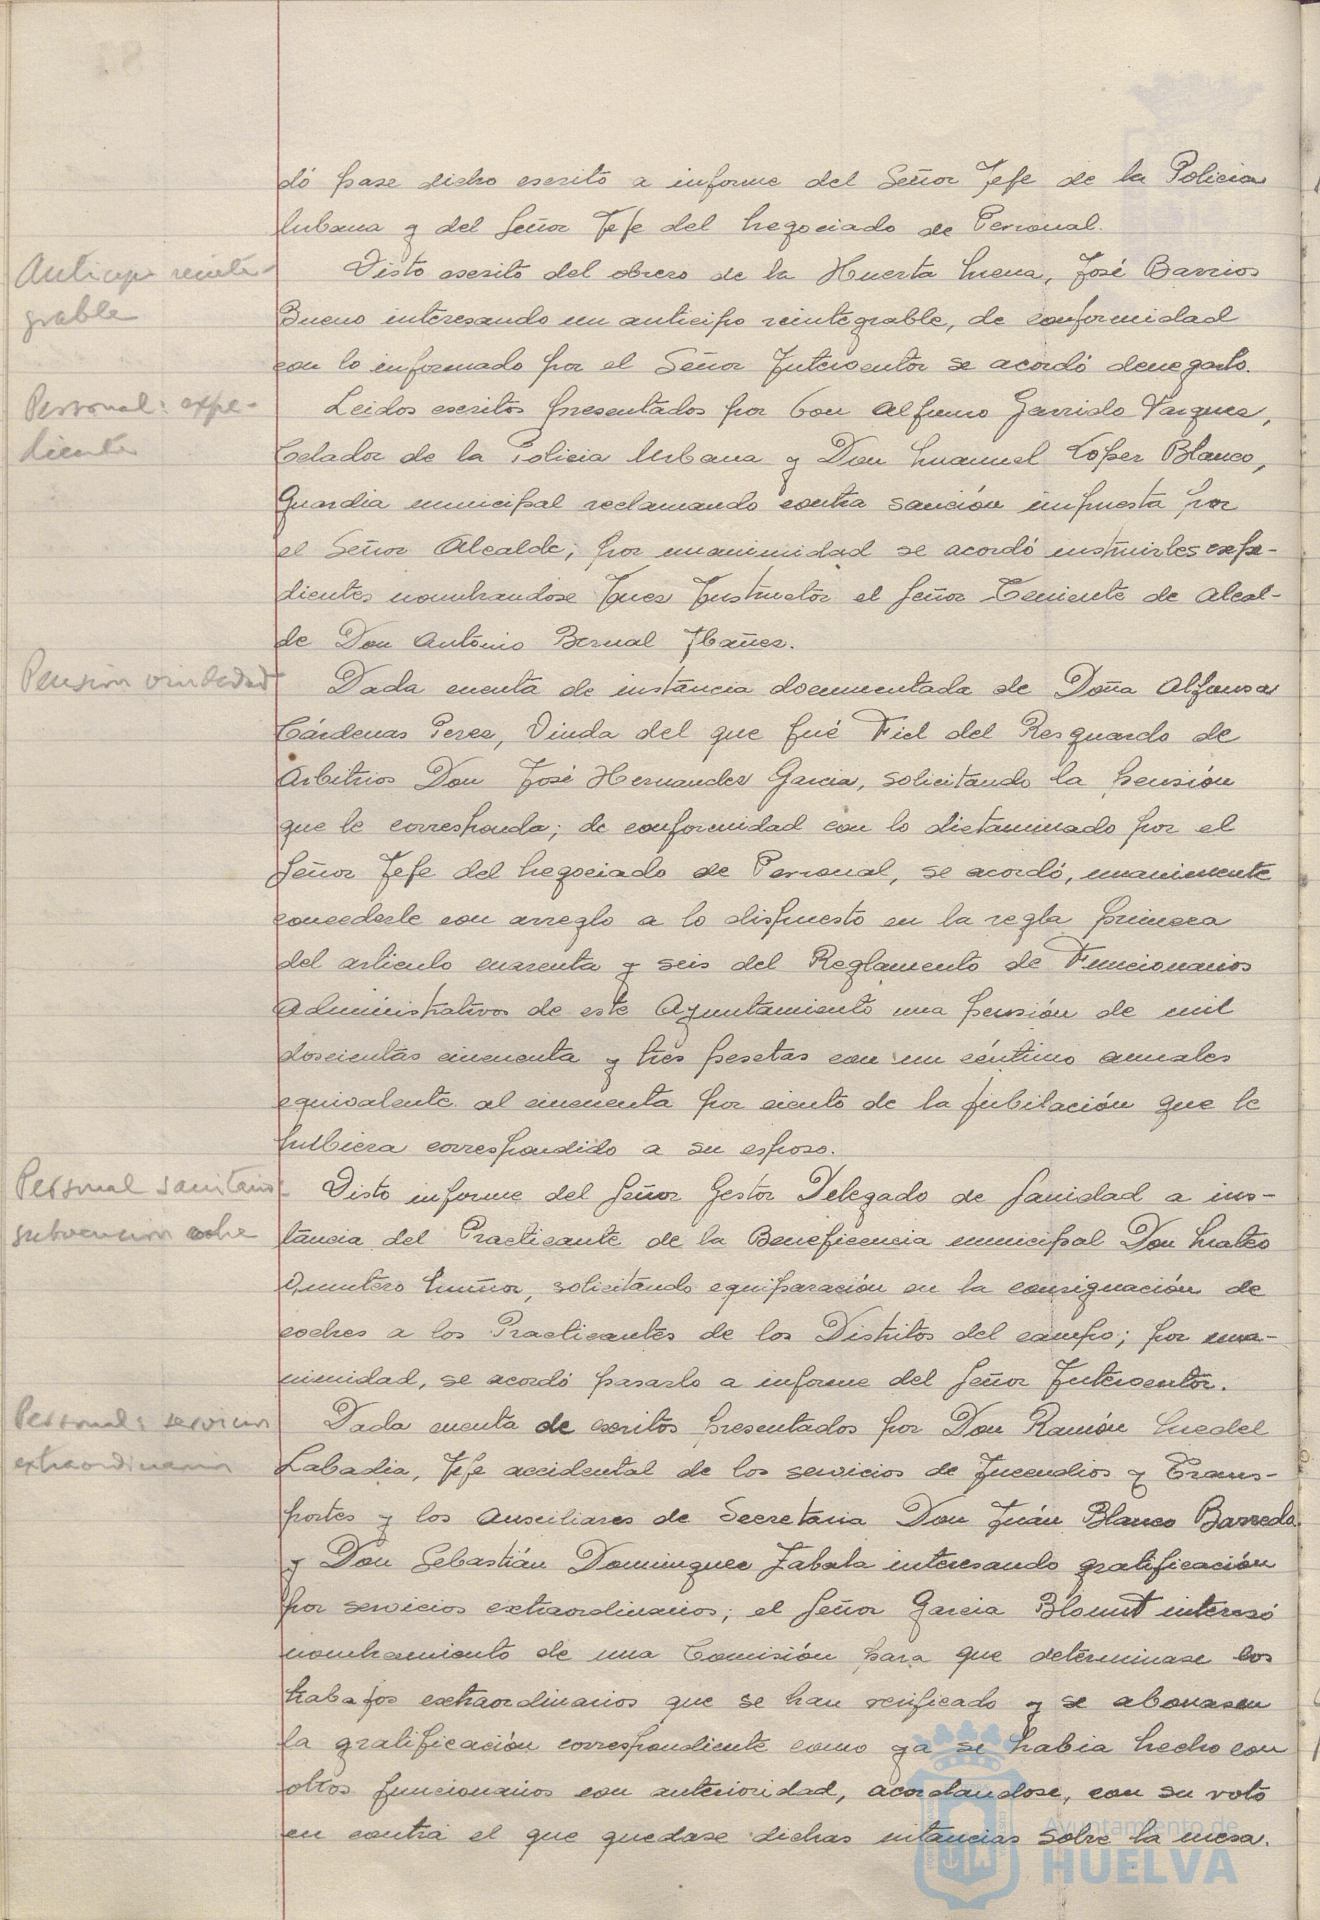 dó pase dicho escrito a informe del Señor Jefe de la Policia
Urbana y del Señor Jefe del Negociado de Personal.
Anticipo reinte-
grable
Visto escrito del obrero de la Huerta Mena, José Barrios
Bueno interesando un anticipo reintegrable, de conformidad
con lo informado por el Señor Interventor se acordó denegarlo.
Personal: expe-
diente
Leidos escritos presentados por Don Alfonso Garrido Vazquez,
Celador de la Policia Urbana y Don Manuel Lopez Blanco,
Guardia municipal reclamando contra sanción impuesta por
el Señor Alcalde; por unanimidad se acordó instruirles expe-
dientes nombrandose Juez Instructor el Señor Teniente de Alcal-
de Don Antonio Bernal Ibañez.
Pensión viudedad
Dada cuenta de instancia documentada de Doña Alfonsa
Cárdenas Perez, Viuda del que fué Fiel del Resguardo de
Arbitrios Don José Hernandez Garcia, solicitando la pensión
que le corresponda; de conformidad con lo dictaminado por el
Señor Jefe del Negociado de Personal, se acordó, unanimente
concederle con arreglo a lo dispuesto en la regla primera
del articulo cuarenta y seis del Reglamento de Funcionarios
Administrativos de este Ayuntamiento una pensión de mil
doscientas cincuenta y tres pesetas con un céntimo anuales
equivalente al cincuenta por ciento de la jubilación que le
hubiera correspondido a su esposo.
Personal sanitario:
subvencion coche
Visto informe del Señor Gestor Delegado de Sanidad a ins-
tancia del Practicante de la Beneficencia municipal Don Mateo
Quintero Muñoz, solicitando equiparación en la consignación de
coches a los Practicantes de los Distritos del campo; por una-
nimidad, se acordó pasarlo a informe del Señor Interventor.
Personal: servicios
extraordinarios
Dada cuenta de escritos presentados por Don Ramón
Labadia, Jefe accidental de los servicios de Incendios y Trans-
portes y los Auxiliares de Secretaria Don Juán Blanco Barreda
y Don Sebastián Dominguez Zabala interesando gratificación
por servicios extraordinarios; el Señor Garcia Blount interesó
nombramiento de una Comisión para que determinase los
trabajos extraordinarios que se han verificado y se abonasen
la gratificación correspondiente como ya se habia hecho con
otros funcionarios con anterioridad, acordandose, con su voto
en contra el que quedase dichas intancias sobre la mesa.
Ayuntamiento de
HUELVA